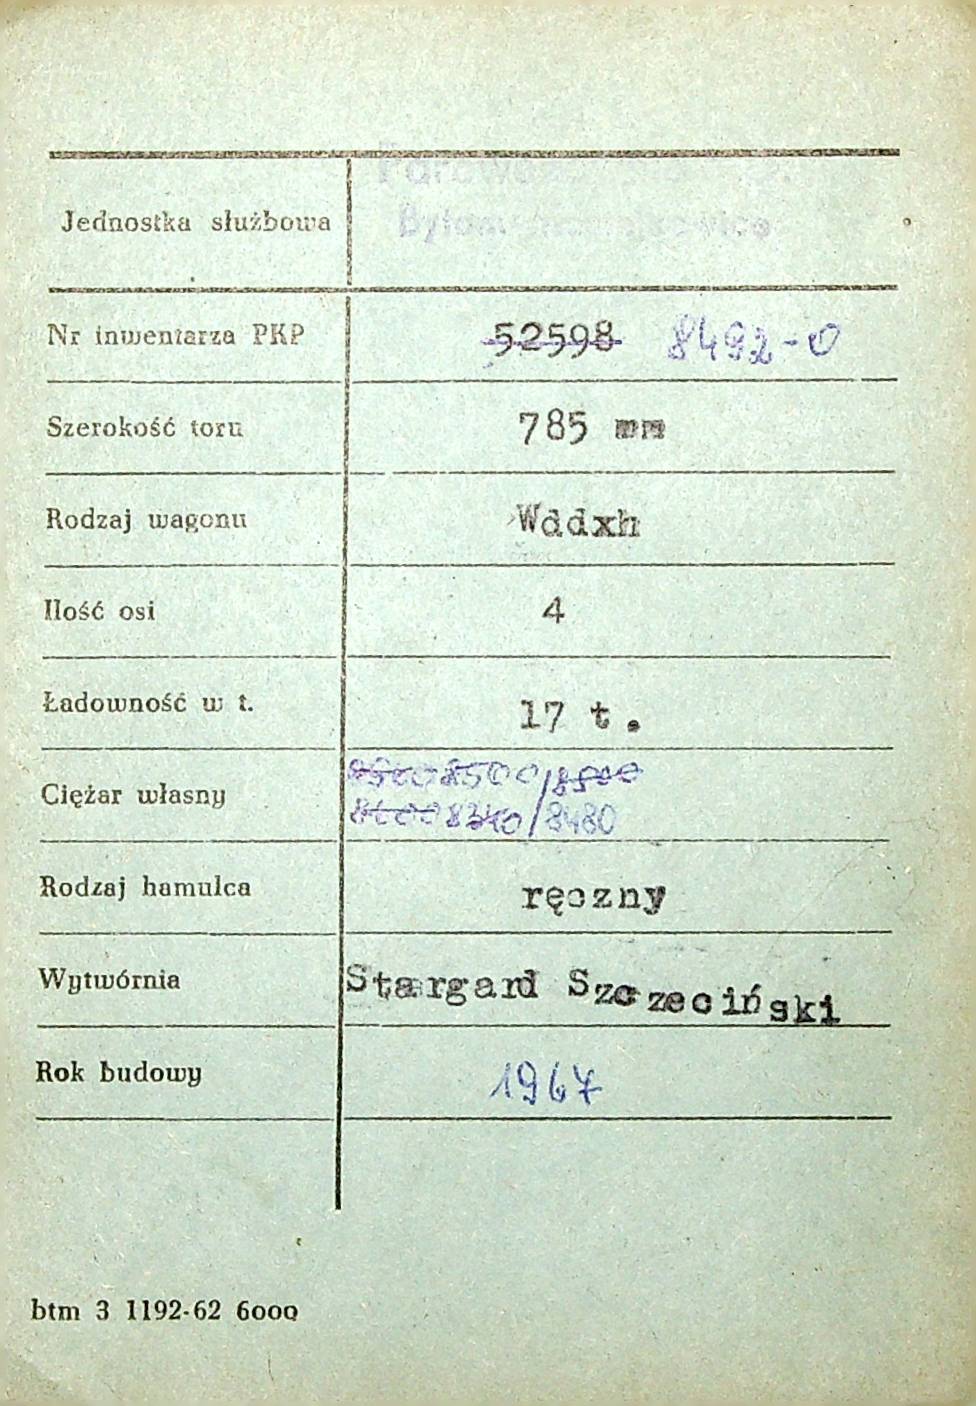 Jednostka służbowa
Nr inwentarza PKP 52598 8492-0
Szerokość toru 785 mm
Rodzaj wagonu Wddxh
Ilość osi 4
Ładowność w t. 17 t.
Ciężar własny 8500/8500
8340/8480
Rodzaj hamulca ręczny
Wytwórnia Stargard Szczeciński
Rok budowy 1967
btm 3 1192-62 6000